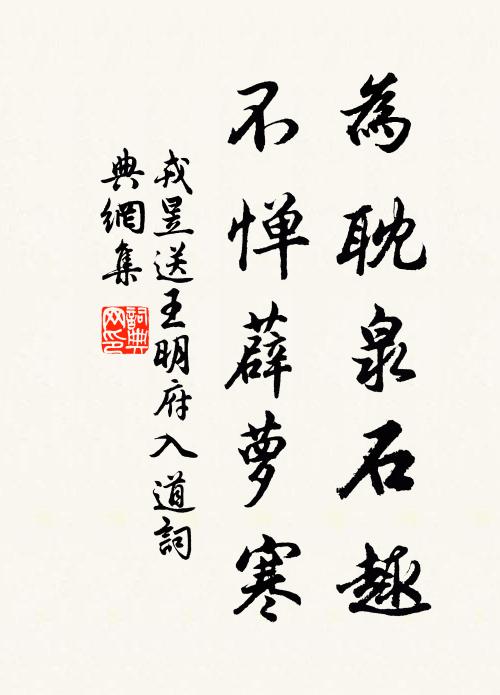 為耽泉石趣
不惮薜萝寒
戎昱送王明府入道詞
典網集
詞典
网印